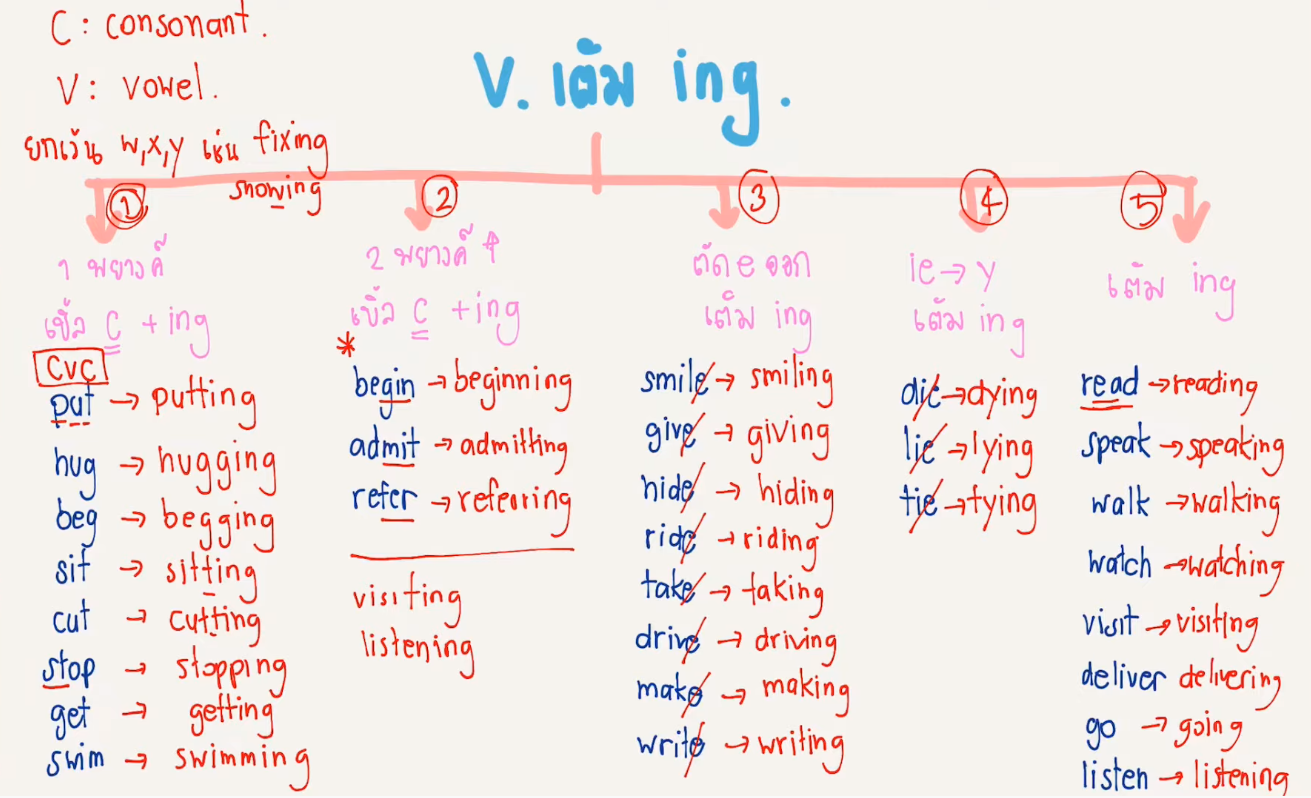 C: consonant.
V: vowel.
ยกเว้น w,x,y เช่น fixing
showing
V. เติม ing.
1
1 พยางค์
เบิ้ล C + ing
CVC
put → putting
hug → hugging
beg → begging
sit → sitting
cut → cutting
stop → stopping
get → getting
swim → swimming
2
2 พยางค์ ↑
เบิ้ล C + ing
*
begin → beginning
admit → admitting
refer → referring
visiting
listening
3
ตัด e ออก
เติม ing
smile → smiling
give → giving
hide → hiding
ride → riding
take → taking
drive → driving
make → making
write → writing
4
ie → y
เติม ing
die → dying
lie → lying
tie → tying
5
เติม ing
read → reading
speak → speaking
walk → walking
watch → watching
visit → visiting
deliver delivering
go → going
listen → listening